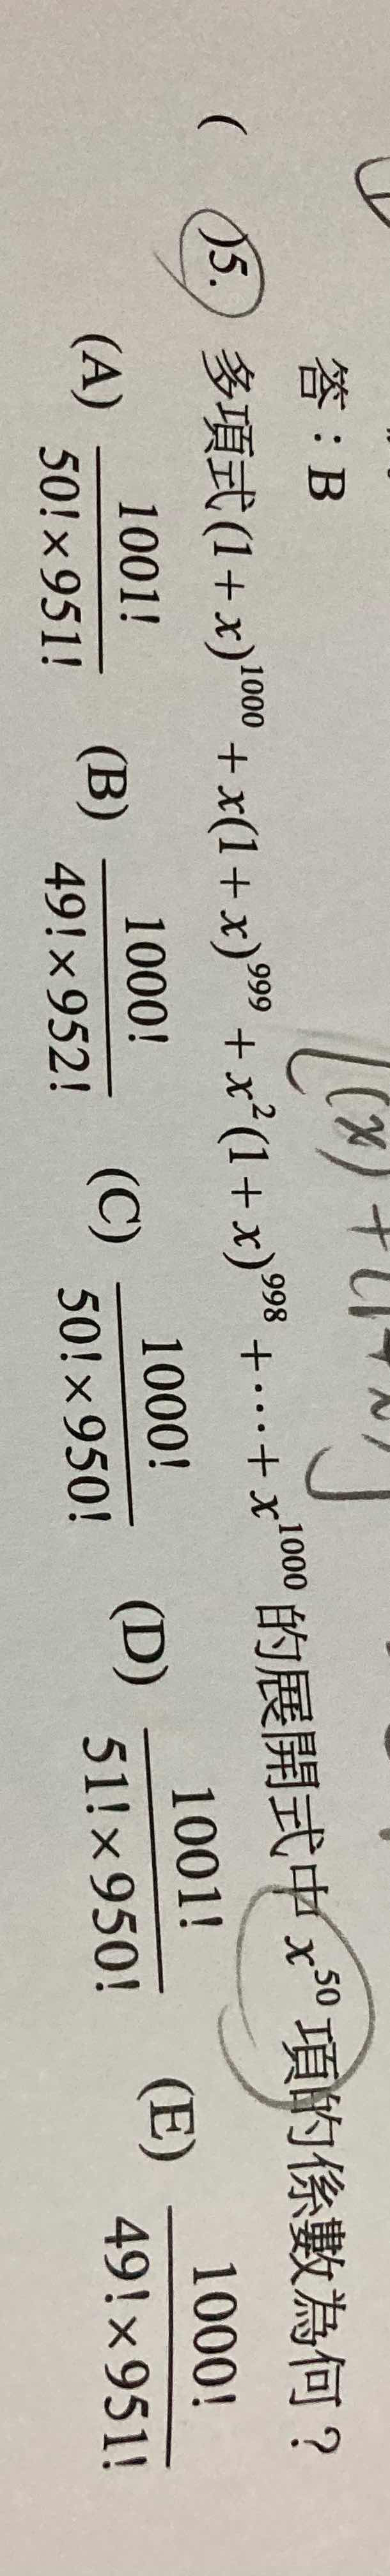 (x)+(1+x)
答：B
(　)5. 多項式(1+x)¹⁰⁰⁰+x(1+x)⁹⁹⁹+x²(1+x)⁹⁹⁸+⋯+x¹⁰⁰⁰的展開式中x⁵⁰項的係數為何？
(A) 1001!/(50!×951!) (B) 1000!/(49!×952!) (C) 1000!/(50!×950!) (D) 1001!/(51!×950!) (E) 1000!/(49!×951!)